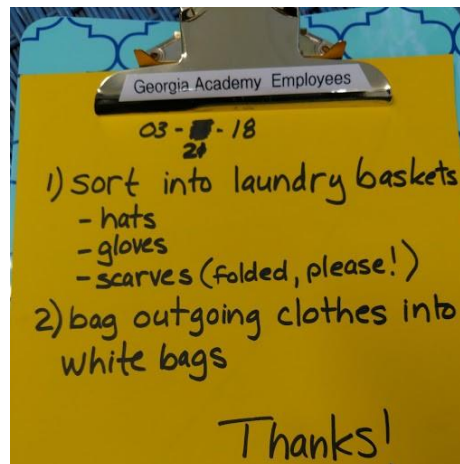 Georgia Academy Employees
03 - - 18
1) sort into laundry baskets
- hats
- gloves
- scarves (folded, please!)
2) bag outgoing clothes into
white bags
Thanks!